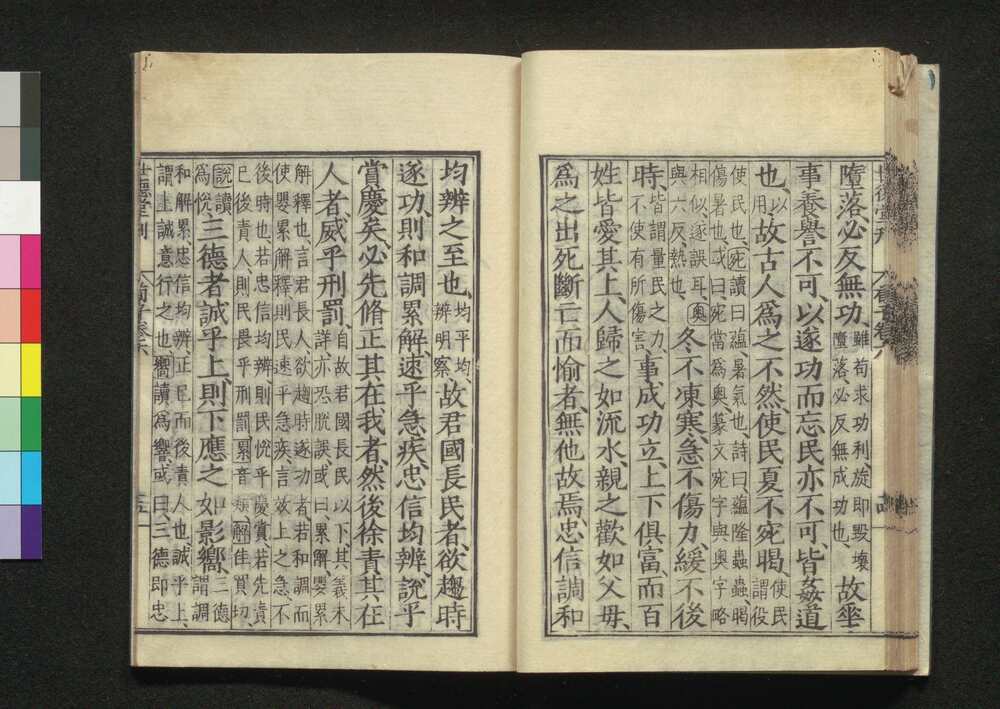 世德堂刊 荀子卷六
墮落必反無功、雖苟求功利旋即毀壞墮落必反無成功也、故垂
事養譽不可、以遂功而忘民亦不可、皆姦道
也、以用、故古人為之不然使民夏不宛暍、使民謂役
使民也、宛讀曰蘊、暑氣也、詩曰蘊隆蟲蟲、暍
傷暑也、或曰、宛當為奧、篆文宛字與奧字略
相似、遂誤耳、奧與六反、熱也、冬不凍寒、急不傷力、緩不後
時、皆謂量民之力、不使有所傷害、事成功立、上下俱富、而百
姓皆愛其上、人歸之如流水、親之歡如父母、
為之出死斷亡而愉者、無他故焉、忠信調和
均辨之至也、均平均、辨明察、故君國長民者、欲趨時
遂功、則和調累解、速乎急疾、忠信均辨、說乎
賞慶矣、必先脩正其在我者、然後徐責其在
人者、威乎刑罰、自故君國長民以下、其義未詳、亦恐脫誤、或曰、累解、嬰累
解釋也、言君長人欲趨時遂功者、若和調而
使嬰累解釋、則民速乎急疾、言效上之急、不
後時也、若忠信均辨、則民悅乎慶賞、若先責
已後責人、則民畏乎刑罰、累音類、解佳買切
說讀為悅、三德者誠乎上、則下應之如影嚮、三德謂調
和解累忠信均辨、正已而後責人也、誠乎上、
謂上誠意行之也、嚮讀為響、或曰三德即忠
世德堂刊 荀子卷六